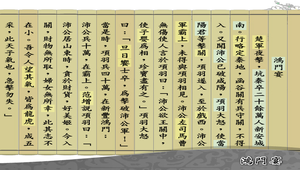 鴻門宴
楚軍夜擊，阬秦卒二十餘萬人新安城
南。行略定秦地。函谷關有兵守關，不得
入。又聞沛公已破咸陽，項羽大怒，使當
陽君等擊關，項羽遂入，至于戲西。沛公
軍霸上，未得與項羽相見。沛公左司馬曹
無傷使人言於項羽曰：「沛公欲王關中，
使子嬰為相，珍寶盡有之。」項羽大怒
曰：「旦日饗士卒，為擊破沛公軍！」
當是時，項羽兵四十萬，在新豐鴻門；
沛公兵十萬，在霸上。范增說項羽曰：「
沛公居山東時，貪於財貨，好美姬。今入
關，財物無所取，婦女無所幸，此其志不
在小。吾令人望其氣，皆為龍虎，成五
采，此天子氣也。急擊勿失。」
鴻門宴